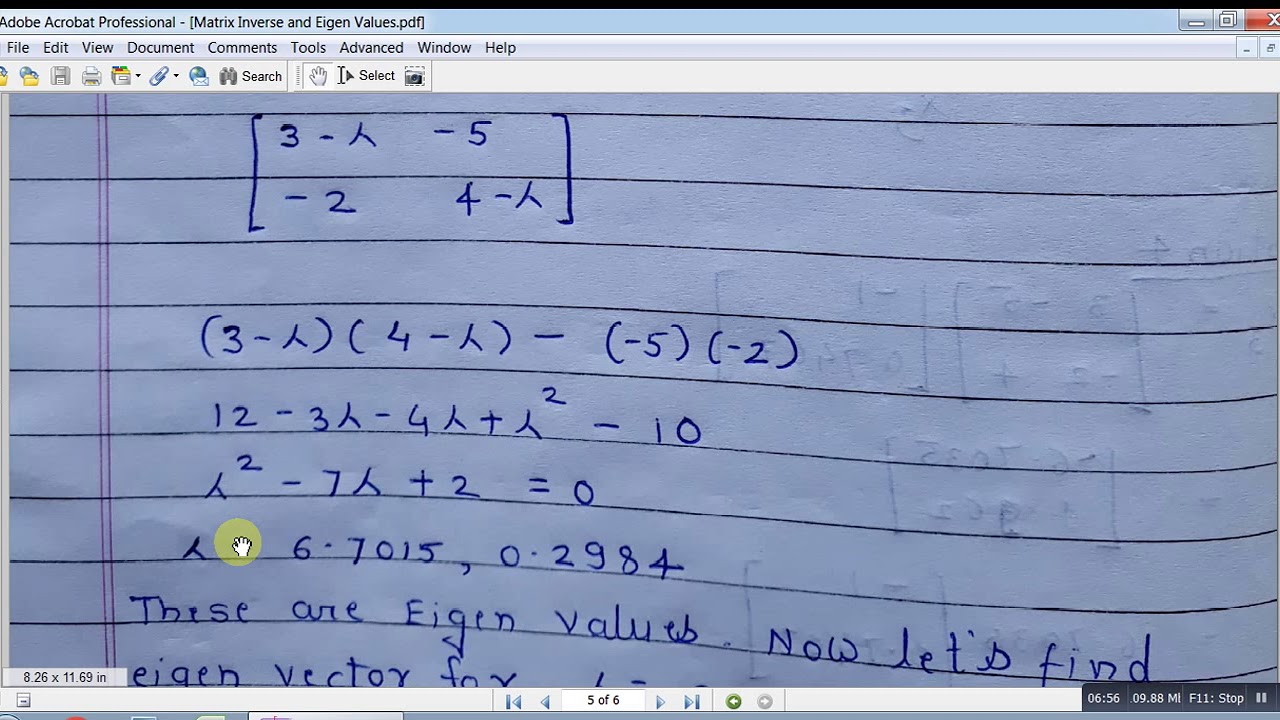 Adobe Acrobat Professional - [Matrix Inverse and Eigen Values.pdf]
File Edit View Document Comments Tools Advanced Window Help
Search Select
3 - λ - 5
- 2 4 - λ
(3 - λ) ( 4 - λ) - (-5) (-2)
12 - 3λ - 4λ + λ² - 10
λ² - 7λ + 2 = 0
λ 6.7015, 0.2984
These are Eigen values. Now let's find
eigen vector for
8.26 x 11.69 in
5 of 6
06:56 09.88 MI F11: Stop